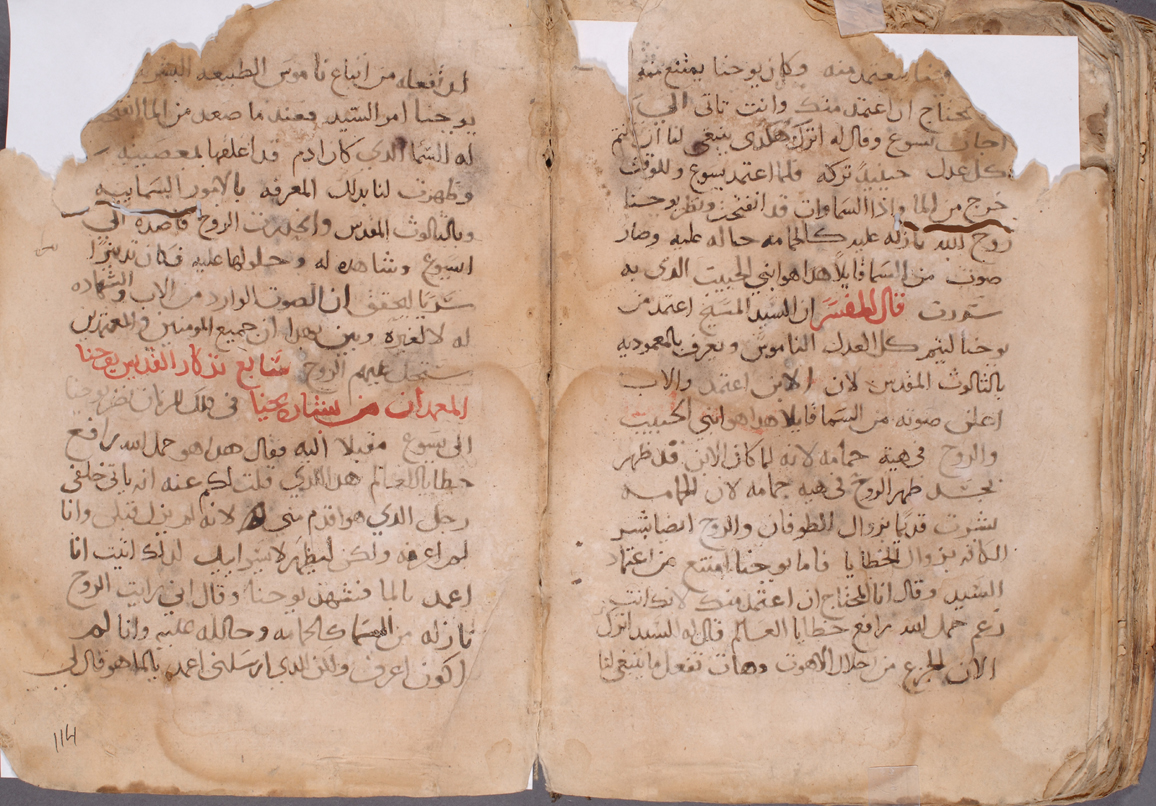 ليعتمد منه وكان يوحنا يمتنع منه
محتاج ان اعتمد منك وانت تاتي الي
اجاب يسوع وقال له اترك هكذى ينبغي لنا ان نتم
كل عدل حينيذ تركه فلما اعتمد يسوع وللوقت
خرج من الما واذا السماوات قد انفتحت ونظر يوحنا
روح الله نازله عليه كالحمامه حاله عليه وصار
صوت من السما قايلا هذا هو ابني الحبيب الذي به
سررت قال المفسر ان السيد المسيح اعتمد من
يوحنا ليتم كل العدل الناموس ونعرف بالمعموديه
بالثالوث المقدس لان الابن اعتمد والاب
اعلن صوته من السما قايلا هذا هو ابني الحبيب
والروح في هية حمامه لانه لما كان الابن قد ظهر
بجسد ظهر الروح في هيه حمامه لان الحمامه
بشرت قديما بزوال الطوفان والروح ايضا بشر
بزوال الخطايا فاما يوحنا امتنع من اعتماد
السيد وقال انا المحتاج ان اعتمد منك لانك انت
زعم حمل الله رافع خطايا العالم قال له السيد اترك
الان الجزع من اجلال الاهوت وهات نفعل ما ينبغي لنا
ان نفعله من اتباع ناموس الطبيعه
يوحنا امر السيد فعند ما صعد من الما
له السما الذي كان ادم قد اغلقها بمعصيته
وظهرت لنا بذلك المعرفه بالامور السماييه
وبالثالوث المقدس وانحدرت الروح قاصده الي
ايسوع وشاهده له وحلولها عليه فكان تدبيرا
سريا ليحقق ان الصوت الوارد من الاب والشهاده
له لا لغيره وبين بهذا ان جميع المومنين المعتمدين
ستحل عليهم الروح سابع تذكار القديس يوحنا
المعمدان من بشاره يحنا في ذلك الزمان نظر يوحنا
الى يسوع مقبلا اليه وقال هذا هو حمل الله رافع
خطايا العالم هذا الذي قلت لكم عنه انه ياتي خلفي
رجل الذي هو اقدم مني لانه لم يزل قبلي وانا
لم اعرفه ولكن ليظهر لاسراييل لذلك اتيت انا
اعمد بالما فشهد يوحنا وقال اني رايت الروح
نازله من السما كالحمامه وحالله عليه وانا لم
اكون اعرف ولكن الذي ارسلني اعمد بالما هو قال لي
114